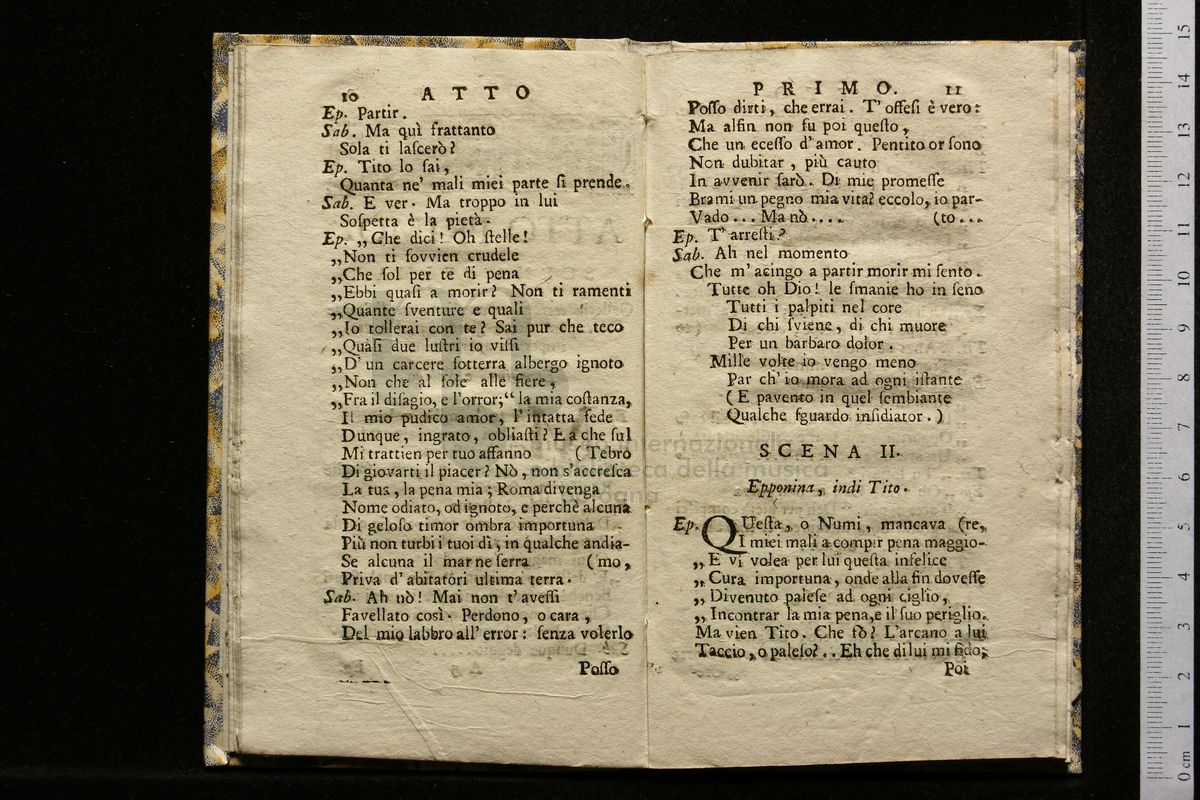 10 ATTO
Ep. Partir.
Sab. Ma quì frattanto
Sola ti lascerò?
Ep. Tito lo sai,
Quanta ne' mali miei parte si prende.
Sab. E ver. Ma troppo in lui
Sospetta è la pietà.
Ep. „Che dici! Oh stelle!
„Non ti sovvien crudele
„Che sol per te di pena
„Ebbi quasi a morir? Non ti ramenti
„Quante sventure e quali
„Io tollerai con te? Sai pur che teco
„Quàsi due lustri io vissi
„D' un carcere sotterra albergo ignoto
„Non che al sole alle fiere,
„Fra il disagio, e l'orror;“ la mia costanza,
Il mio pudico amor, l' intatta fede
Dunque, ingrato, obliasti? E a che sul
Mi trattien per tuo affanno (Tebro
Di giovarti il piacer? Nò, non s'accresca
La tua, la pena mia; Roma divenga
Nome odiato, od ignoto, e perchè alcuna
Di geloso timor ombra importuna
Più non turbi i tuoi dì, in qualche andia-
Se alcuna il mar ne serra (mo,
Priva d' abitatóri ultima terra.
Sab. Ah nò! Mai non t'avessi
Favellato così. Perdono, o cara,
Del mio labbro all' error: senza volerlo
Posso
PRIMO. 11
Posso dirti, che errai. T' offesi è vero:
Ma alfin non fu poi questo,
Che un ecesso d' amor. Pentito or sono
Non dubitar, più cauto
In avvenir sarò. Di mie promesse
Brami un pegno mia vita? eccolo, io par-
Vado... Ma nò.... (to...
Ep. T' arresti?
Sab. Ah nel momento
Che m' acingo a partir morir mi sento.
Tutte oh Dio! le smanie ho in seno
Tutti i palpiti nel core
Di chi sviene, di chi muore
Per un barbaro dolor.
Mille volte io vengo meno
Par ch' io mora ad ogni istante
(E pavento in quel sembiante
Qualche sguardo insidiator.)
SCENA II.
Epponina, indi Tito.
Ep. QUesta, o Numi, mancava (re,
I miei mali a compir pena maggio-
„ E vi volea per lui questa infelice
„ Cura importuna, onde alla fin dovesse
„ Divenuto palese ad ogni ciglio,
„ Incontrar la mia pena, e il suo periglio.
Ma vien Tito. Che fò? L'arcano a lui
Taccio, o paleso?.. Eh che di lui mi fido;
Poi
0 cm 1 2 3 4 5 6 7 8 9 10 11 12 13 14 15